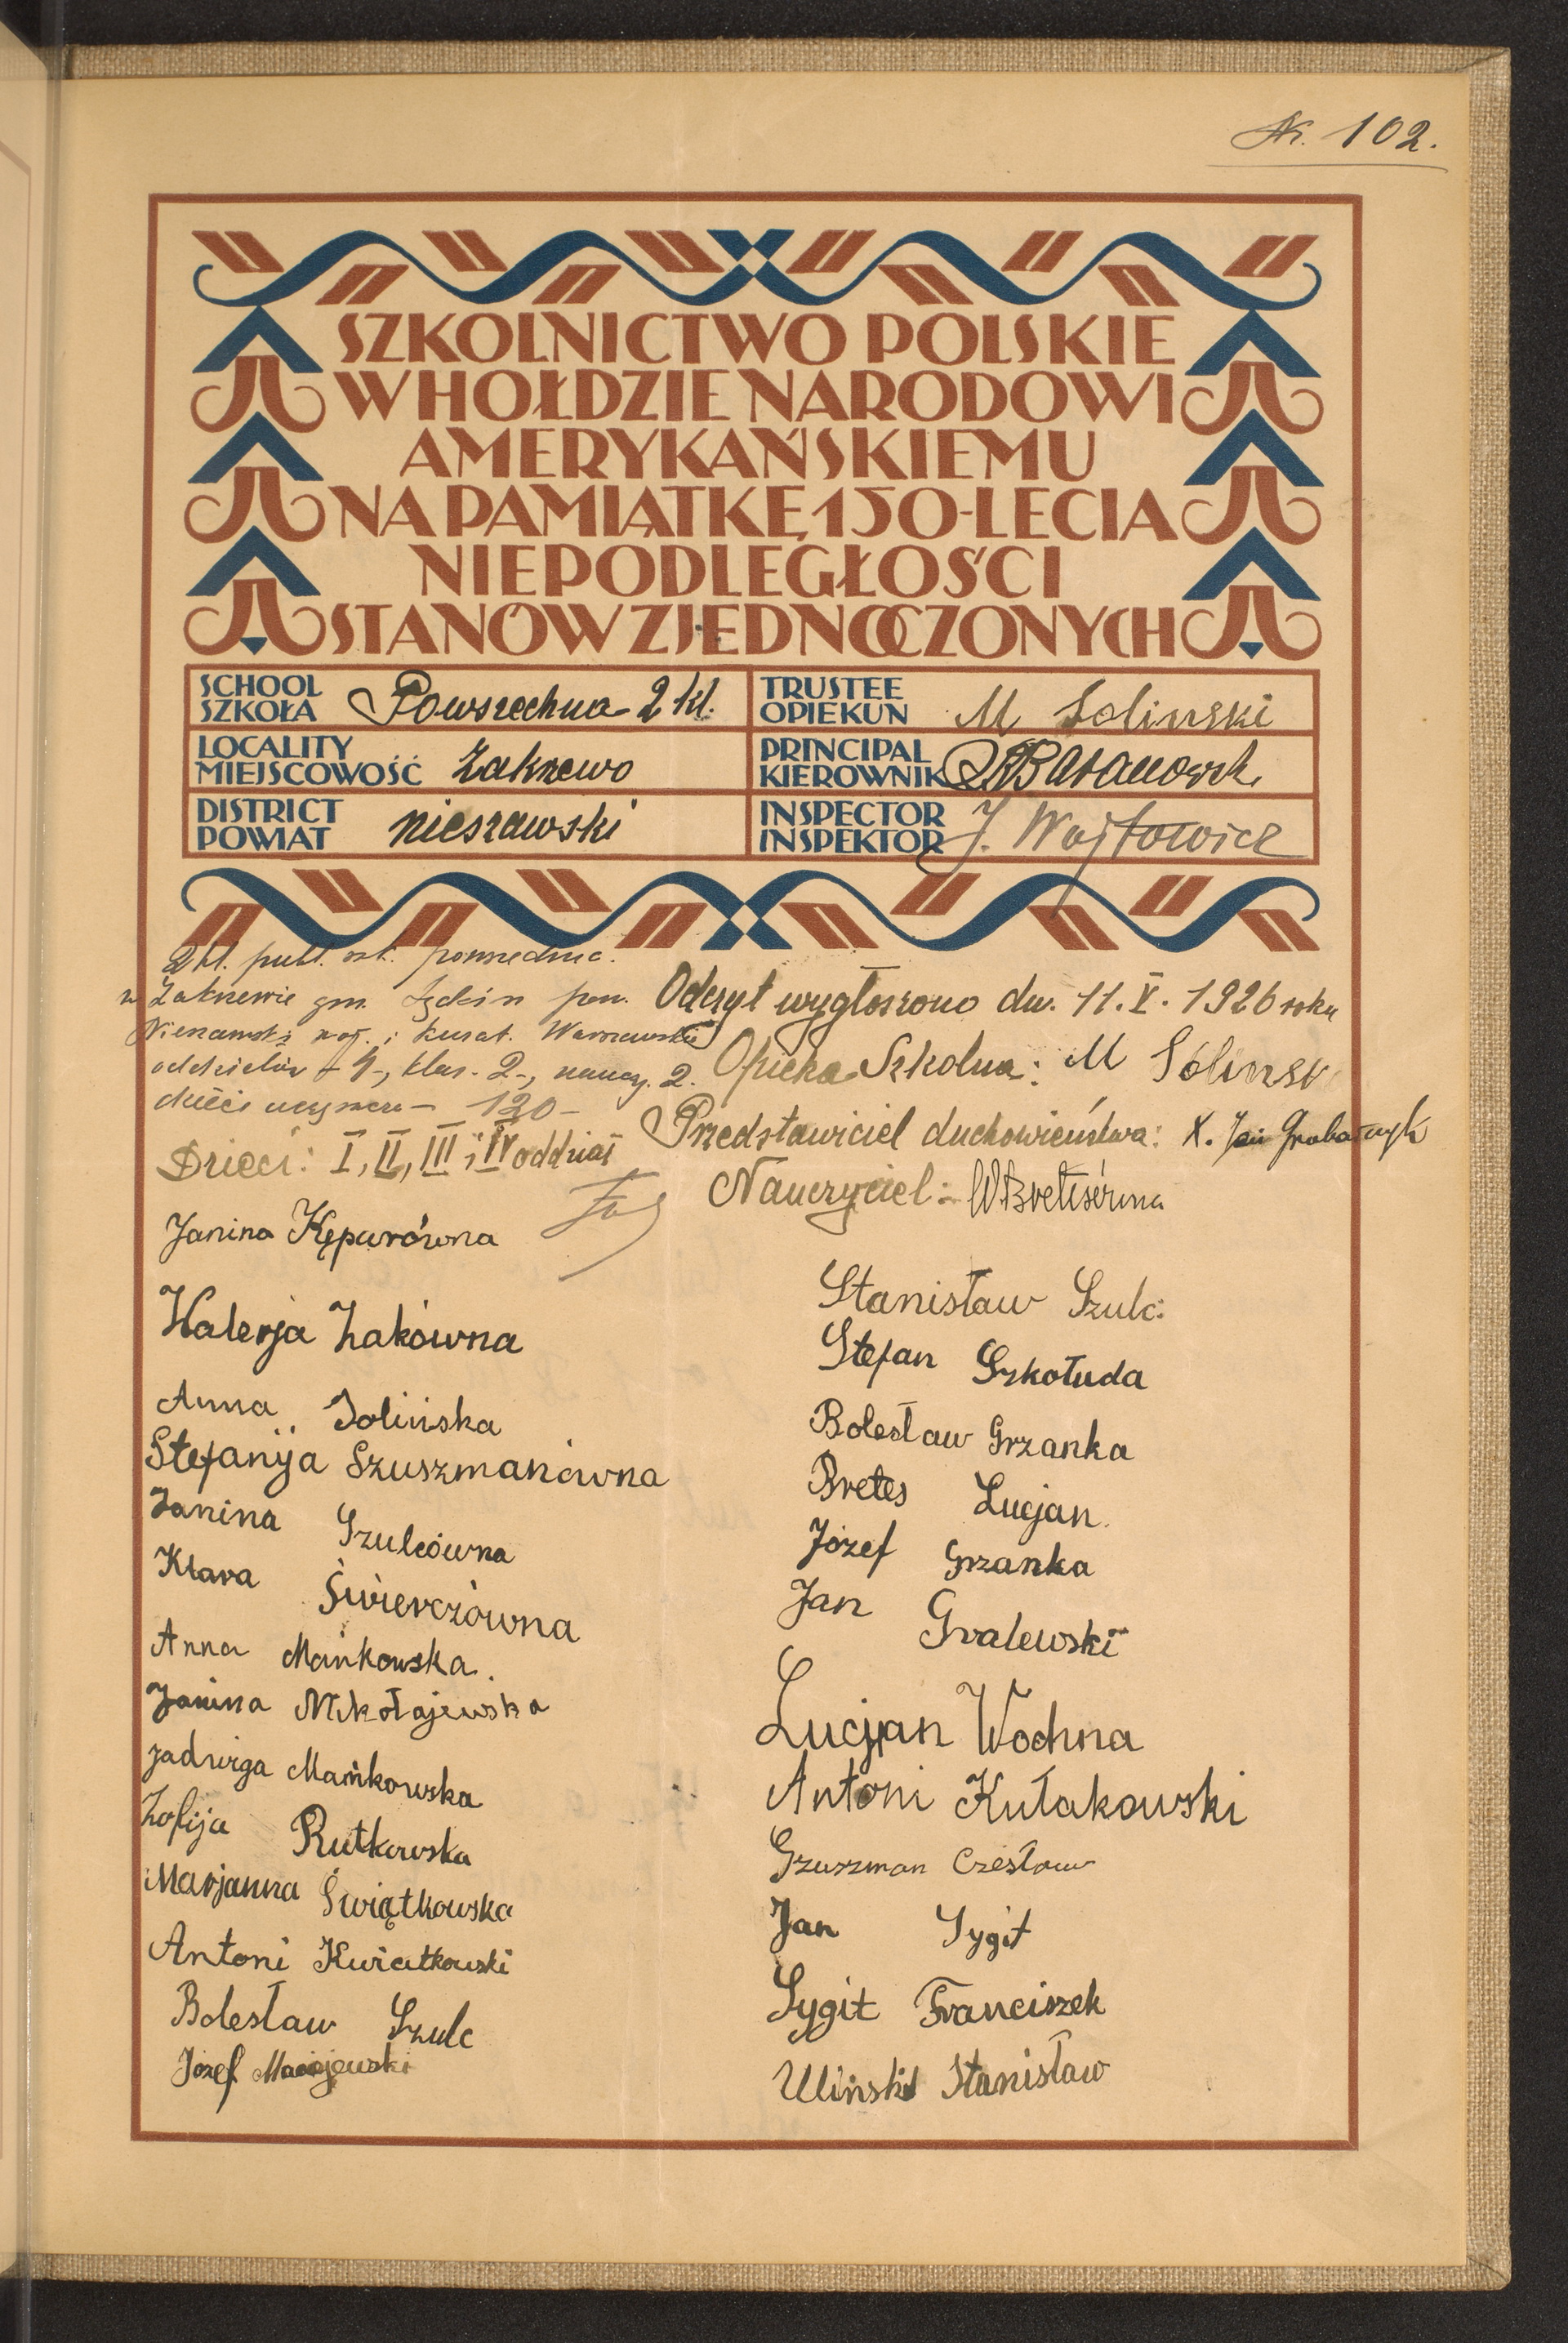 Nr. 102.
SZKOLNICTWO POLSKIE
W HOŁDZIE NARODOWI
AMERYKAŃSKIEMU
NA PAMIĄTKĘ 150-LECIA
NIEPODLEGŁOŚCI
STANÓW ZJEDNOCZONYCH
SCHOOL
SZKOŁA Powszechna 2 kl.
TRUSTEE
OPIEKUN M Solinski
LOCALITY
MIEJSCOWOŚĆ Zakrzewo
PRINCIPAL
KIEROWNIK
DISTRICT
POWIAT nieszawski
INSPECTOR
INSPEKTOR J. Wojtowicz
2 kl. publ. szk. powszechna.
w Zakrzewie gm. pow.
oddziałów 4, klas 2, naucz. 2.
120
Dzieci: I, II, III i IV oddział
Odczyt wygłoszono dn. 11. V. 1926 roku
Opieka Szkolna: M Solinski
Przedstawiciel duchowieństwa: X. Jan Grabarczyk
Nauczyciel:
Janina Kępurówna
Walerja Żakówna
Anna Solińska
Stefanija Szuszmanówna
Janina Szulcówna
Klara Świerczówna
Anna Mańkowska.
Janina Mikołajewska
Jadwiga Mańkowska
Zofija Rutkowska
Marjanna Świątkowska
Antoni Kwiatkowski
Bolesław Szulc
Józef Maciejewski
Stanisław Szulc.
Stefan Szkołuda
Bolesław Grzanka
Bretes Lucjan.
Józef Grzanka
Jan Gralewski
Lucjan Wochna
Antoni Kułakowski
Szuszman Czesław
Jan Sygit
Sygit Franciszek
Uliński Stanisław